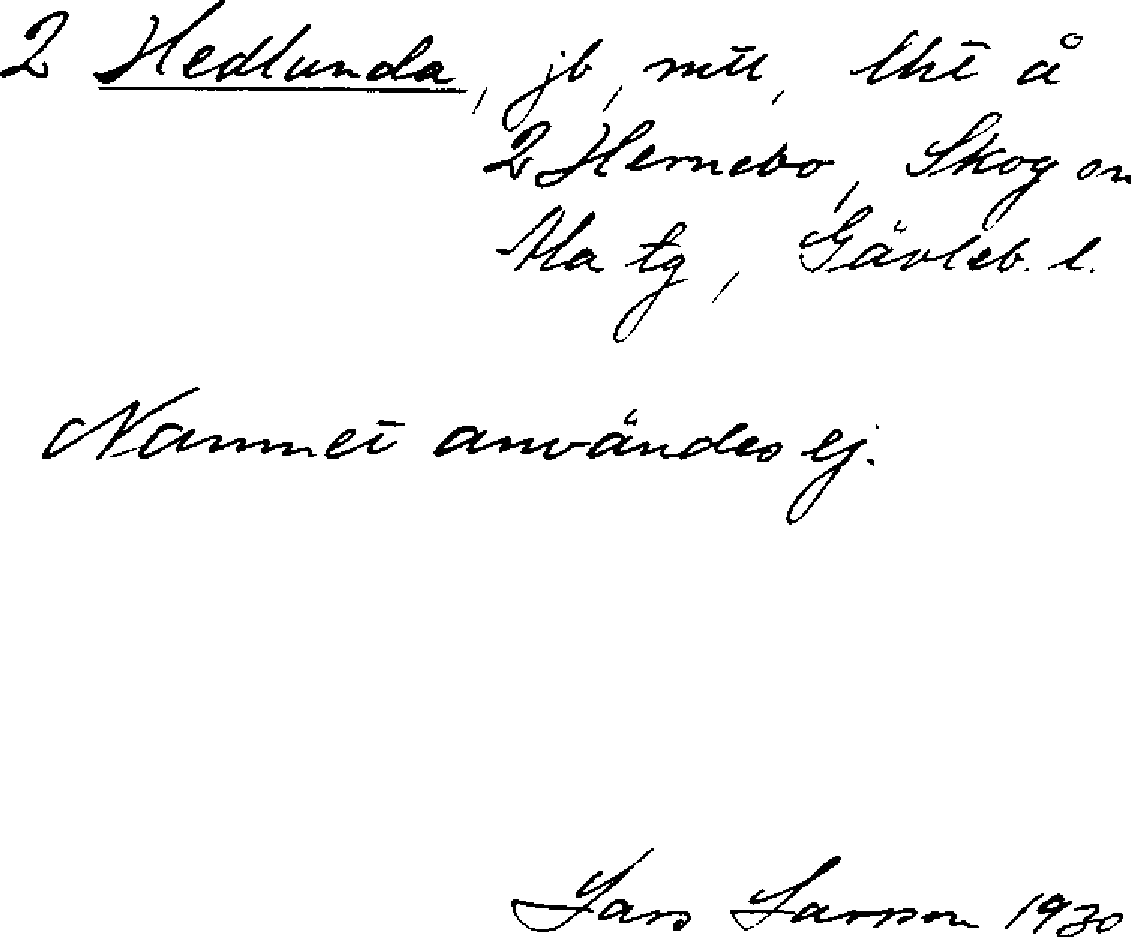 2 Hedlunda, jb, mtl, lht å
2 Hemebo, Skog sn
Ala tg, Gävleb. l.
Namnet användes ej.
Lars Larsson 1930